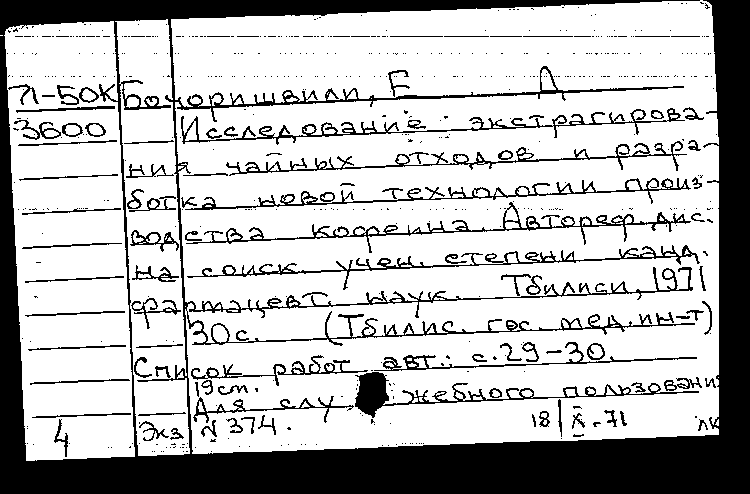 71-50К Бочоришвили, Е Д
3600 Исследование экстрагирова-
ния чайных отходов и разра-
ботка новой технологии произ-
водства кофеина. Автореф. дис.
на соиск. учен. степени канд.
фармацевт. наук. Тбилиси, 1971
30с. (Тбилис. гос. мед. ин-т)
Список работ авт.: с. 29-30.
19 cm.
Для слу жебного пользования
4 Экз N 374. 18/X-71 ЛК